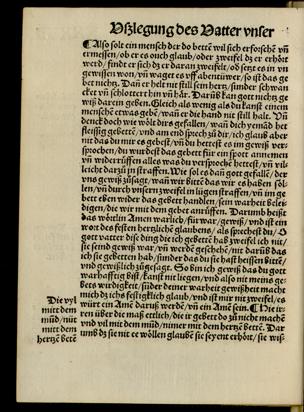 Vßlegung des Vatter vnser
Also solt ein mensch der do bettē wil sich erforschē vñ
ermessen/ob er es ouch glaub/oder zweifel dz er erhört
werd/findet er sich dz er daran zweifelt/od setzt es in vn
gewissen won/vñ waget es vff abentüwer/so ist das ge
bet nichtz. Dañ er helt nit still sein hertz/sunder schwan
cket vñ schlottert hin vñ här. Darūb kan got nichtz ge
wiß darein geben. Gleich als wenig als du kanst einem
menschē etwas gebē/wañ er die hand nit still halt. Vñ
denck doch wie wölt dirs gefallen/wañ dich yemād het
fleissig gebettē/vnd am end sprech zů dir/ich glaub aber
nit das du mir es gebest/vñ du hettest es im gewiß ver-
sprochen/du würdest das gebett für ein spott annemen
vñ widerrüffen alles was du versproche hettest/vñ vil-
leicht darzů in straffen. Wie sol es dañ gott gefallē/der
vns gewiß zůsagt/wañ wir bittē das wir es haben söl-
len/vñ durch vnsern zweifel in lügen straffen/vñ im ge
bett eben wider das gebett handlen/sein warheit belei-
digen/die wir mit dem gebet anrüffen. Darumb heißt
das wörtlin Amen warlich/für war/gewiß/vnd ist ein
wort des festen herzliche glaubens/als sprechest du/O
gott vatter dise ding die ich gebettē hab zweifel ich nit/
sie seind gewiß war/vñ werdē geschehē/nit darūb das
ich sie gebetten hab/sunder das du sie hast heissen bittē/
vnd gewißlich zůgesagt. So bin ich gewiß das du got
warhafftig bist/kanst nit liegen/vnd also nit meins ge-
bets wirdigkeit/sūder deiner warheit gewißheit macht
mich dz ichs festigklich glaub/vnd ist mir nit zweifel/es
würt ein Amē darūß werdē/vñ ein Amē sein. Die ir-
ren über die maß ettlich/die ir gebet do zů nicht machē
vnd vil mit dem mūd/nimer mit dem hertzē bettē. Dar
umb dz sie nit ee wöllen glaubē sie seyent erhört/sie wiß
Die vyl
mitt dem
mūd/nüt
mitt dem
hertzē betē